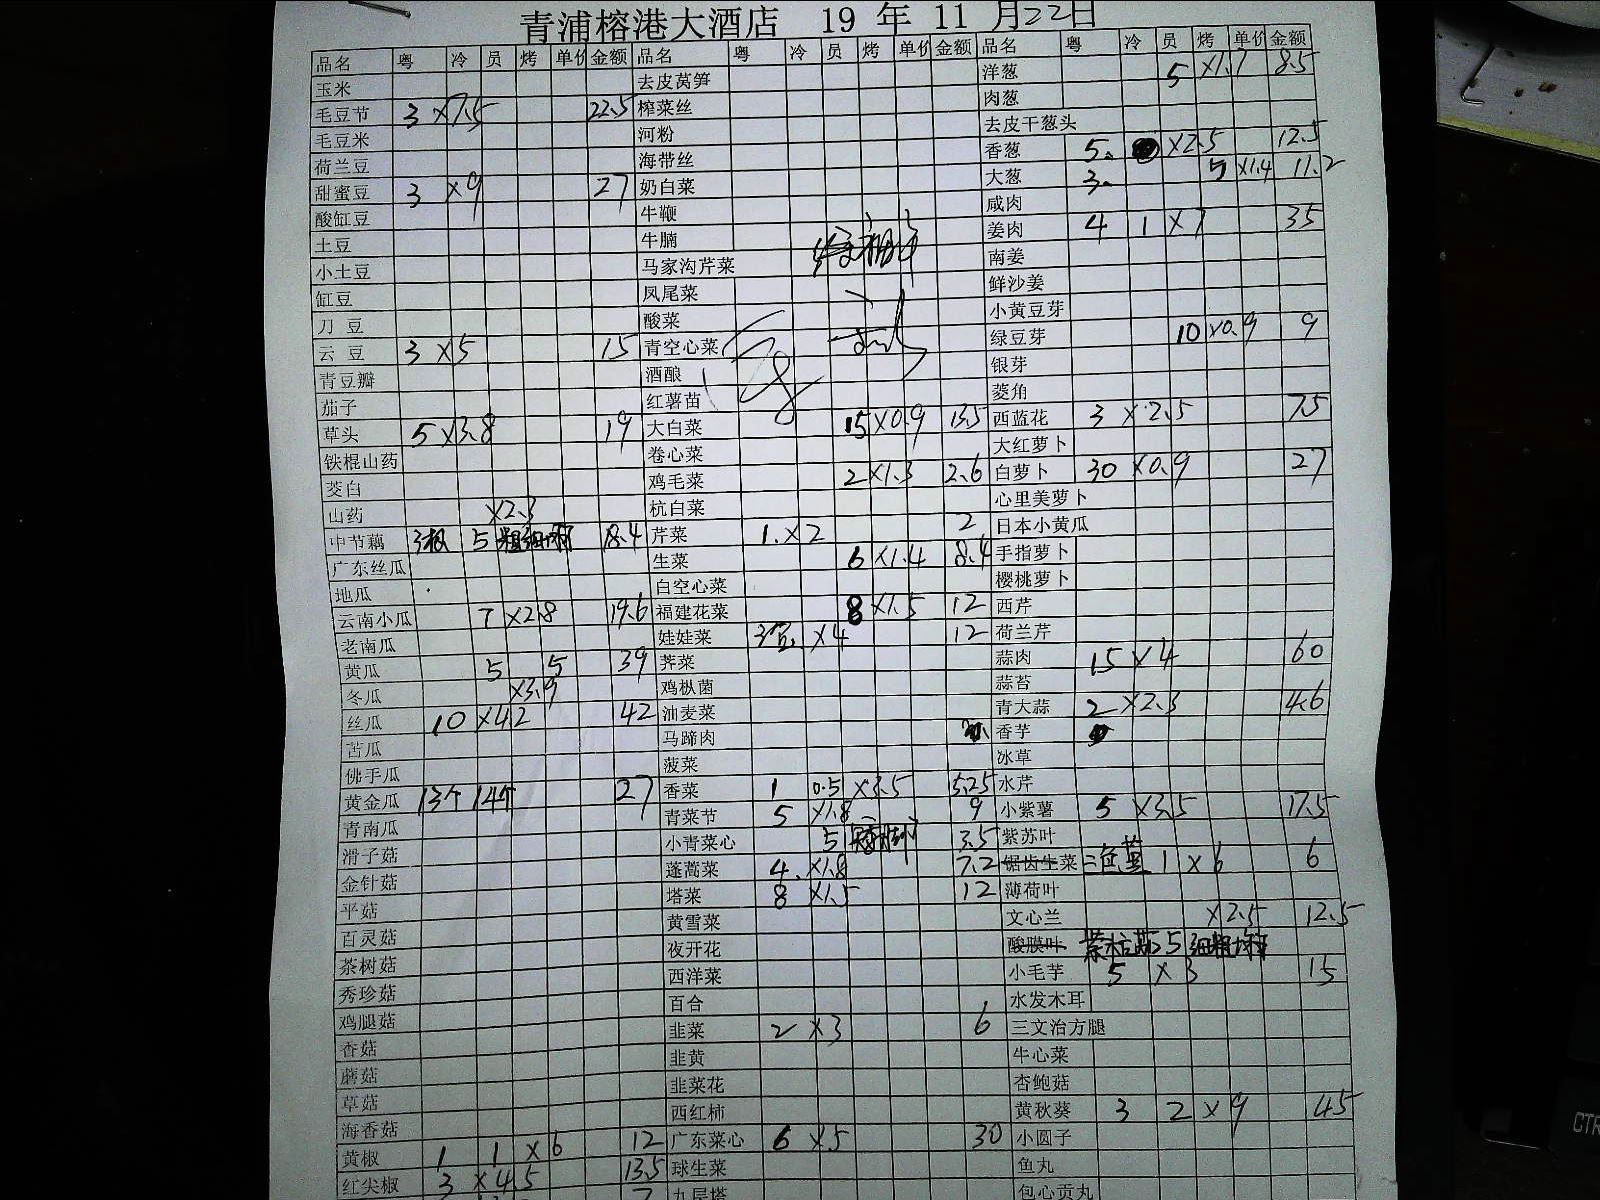 青浦榕港大酒店 19 年 11 月22日
品名 粤 冷 员 烤 单价 金额 品名 粤 冷 员 烤 单价 金额 品名 粤 冷 员 烤 单价 金额
玉米 去皮莴笋 洋葱 5 ×1.7 8.5
毛豆节 3 ×7.5 22.5 榨菜丝 肉葱
毛豆米 河粉 去皮干葱头
荷兰豆 海带丝 香葱 5 ×2.5 12.5
甜蜜豆 3 ×9 27 奶白菜 大葱 3 5 ×1.4 11.2
酸缸豆 牛鞭 咸肉
土豆 牛腩 姜肉 4 1 ×7 35
小土豆 马家沟芹菜 南姜
缸豆 凤尾菜 鲜沙姜
刀 豆 酸菜 小黄豆芽
云 豆 3 ×5 15 青空心菜 绿豆芽 10 ×0.9 9
青豆瓣 酒酿 银芽
茄子 红薯苗 菱角
草头 5 ×3.8 19 大白菜 15 ×0.9 13.5 西蓝花 3 ×2.5 7.5
铁棍山药 卷心菜 大红萝卜
茭白 鸡毛菜 2 ×1.3 2.6 白萝卜 30 ×0.9 27
山药 ×2.3 杭白菜 心里美萝卜
中节藕 3根 5 18.4 芹菜 1 ×2 2 日本小黄瓜
广东丝瓜 生菜 6 ×1.4 8.4 手指萝卜
地瓜 白空心菜 樱桃萝卜
云南小瓜 7 ×2.8 19.6 福建花菜 8 ×1.5 12 西芹
老南瓜 娃娃菜 3 ×4 12 荷兰芹
黄瓜 5 5 39 荠菜 蒜肉 15 ×4 60
冬瓜 ×3.9 鸡枞菌 蒜苔
丝瓜 10 ×4.2 42 油麦菜 青大蒜 2 ×2.3 4.6
苦瓜 马蹄肉 香芋
佛手瓜 菠菜 冰草
黄金瓜 13个 14个 27 香菜 1 0.5 ×3.5 5.25 水芹
青南瓜 青菜节 5 ×1.8 9 小紫薯 5 ×3.5 17.5
滑子菇 小青菜心 5 3.5 紫苏叶
金针菇 蓬蒿菜 4 ×1.8 7.2 锯齿生菜 1 ×6 6
平菇 塔菜 8 ×1.5 12 薄荷叶
百灵菇 黄雪菜 文心兰 ×2.5 12.5
茶树菇 夜开花 酸膜叶 5
秀珍菇 西洋菜 小毛芋 5 ×3 15
鸡腿菇 百合 水发木耳
香菇 韭菜 2 ×3 6 三文治方腿
蘑菇 韭黄 牛心菜
草菇 韭菜花 杏鲍菇
海香菇 西红柿 黄秋葵 3 2 ×9 45
黄椒 1 1 ×6 12 广东菜心 6 ×5 30 小圆子
红尖椒 3 ×4.5 13.5 球生菜 鱼丸
7 九层塔 包心贡丸
CTR